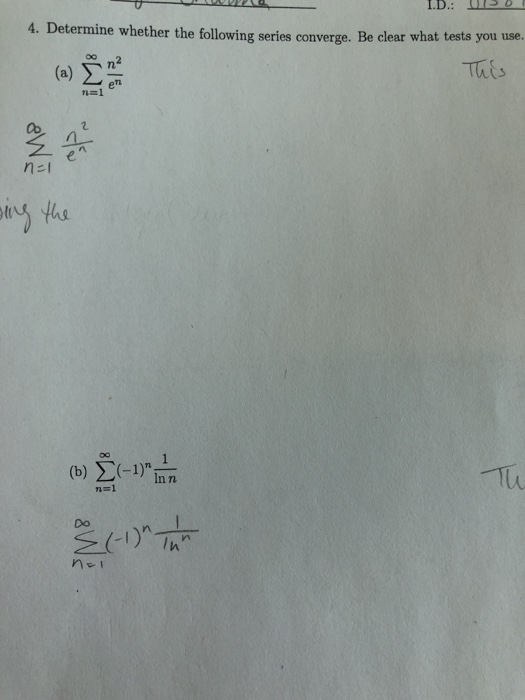 I.D.:
4. Determine whether the following series converge. Be clear what tests you use.
(a) ∑_{n=1}^{∞} n²/eⁿ
This
∑_{n=1}^{∞} n²/eⁿ
the
(b) ∑_{n=1}^{∞} (−1)ⁿ 1/ln n
∑_{n=1}^{∞} (-1)ⁿ 1/lnⁿ